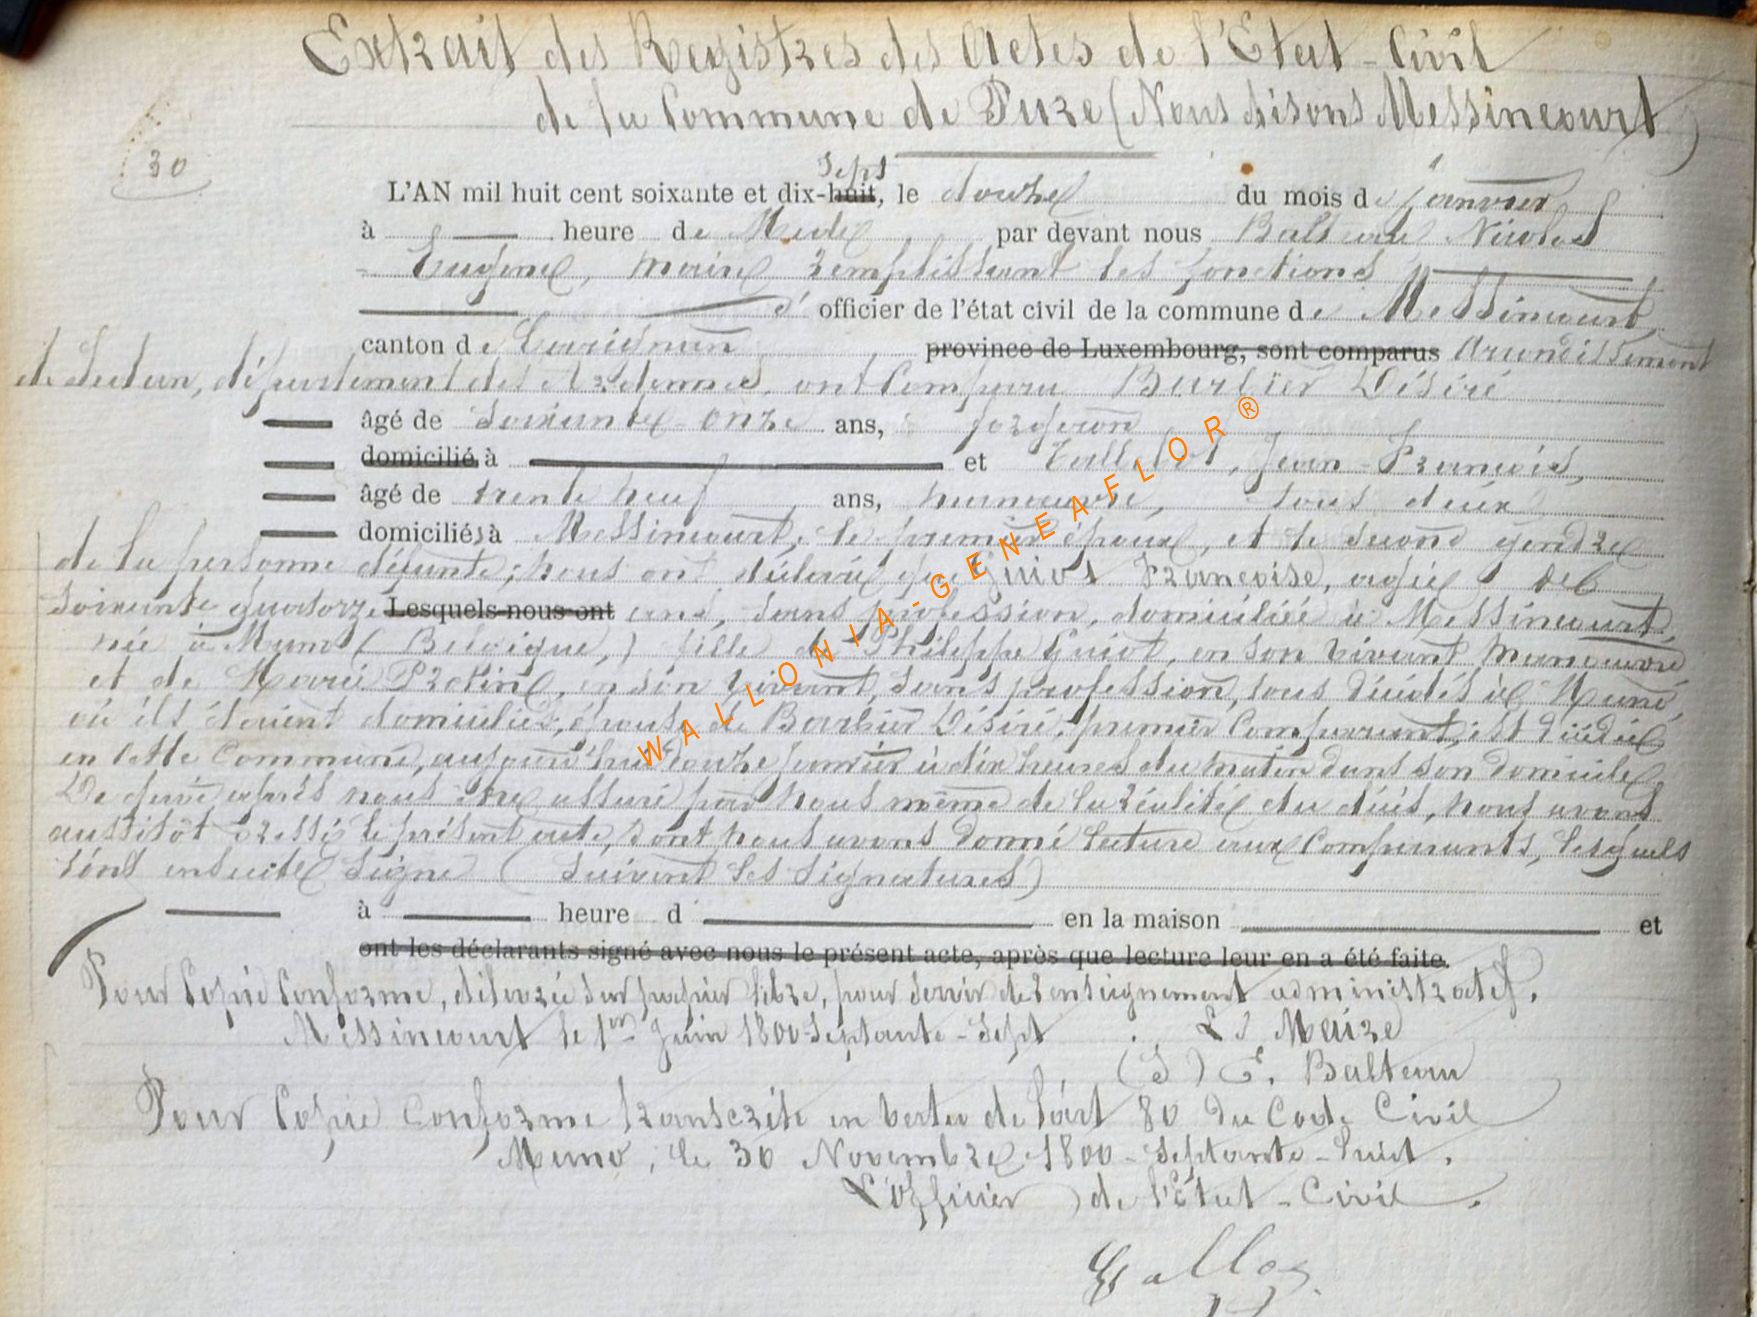 Extrait des Registres des Actes de l'Etat-Civil
de la Commune de Pure (Nous disons Messincourt)
30
sept
L'AN mil huit cent soixante et dix-huit, le douze du mois de janvier
à heure de Midi par devant nous Balteau Nicolas
Eugène, maire remplissant les fonctions
d' officier de l'état civil de la commune de Messincourt,
canton de Carignan province de Luxembourg, sont comparus Arrondissement
de Sedan, département des Ardennes, ont comparu Barbier Désiré
âgé de soixante-onze ans, forgeron
domicilié à et Jean-François,
âgé de trente neuf ans, manœuvre, tous deux
domiciliés à Messincourt, le premier époux, et le second gendre
de la personne défunte; nous ont déclaré que Guiot Françoise, agée de
soixante quatorze Lesquels nous ont ans, sans profession, domiciliée à Messincourt,
née à Muno (Belgique,) fille de Philippe Guiot, en son vivant manœuvre
et de Marie, en son vivant, sans profession, tous décédés à Muno,
où ils étaient domiciliés, épouse de Barbier Désiré, premier comparant, est décédée
en cette commune, aujourd'hui douze janvier à dix heures du matin dans son domicile
De quoi après nous être assuré par nous même de la réalité du décès, nous avons
aussitôt dressé le présent acte, dont nous avons donné lecture aux comparants, lesquels
l'ont ensuite signé (suivent les signatures)
à heure d en la maison et
ont les déclarants signé avec nous le présent acte, après que lecture leur en a été faite.
Pour Copie Conforme, délivrée sur papier libre, pour servir de renseignement administratif.
Messincourt le 1er Juin 1800-septante-sept Le Maire
(S) E. Balteau
Pour Copie Conforme transcrite en vertu de l'art 80 du Code Civil
Muno, le 30 Novembre 1800-septante-huit.
L'officier de l'Etat-Civil.
WALLONIA-GENEAFLOR®